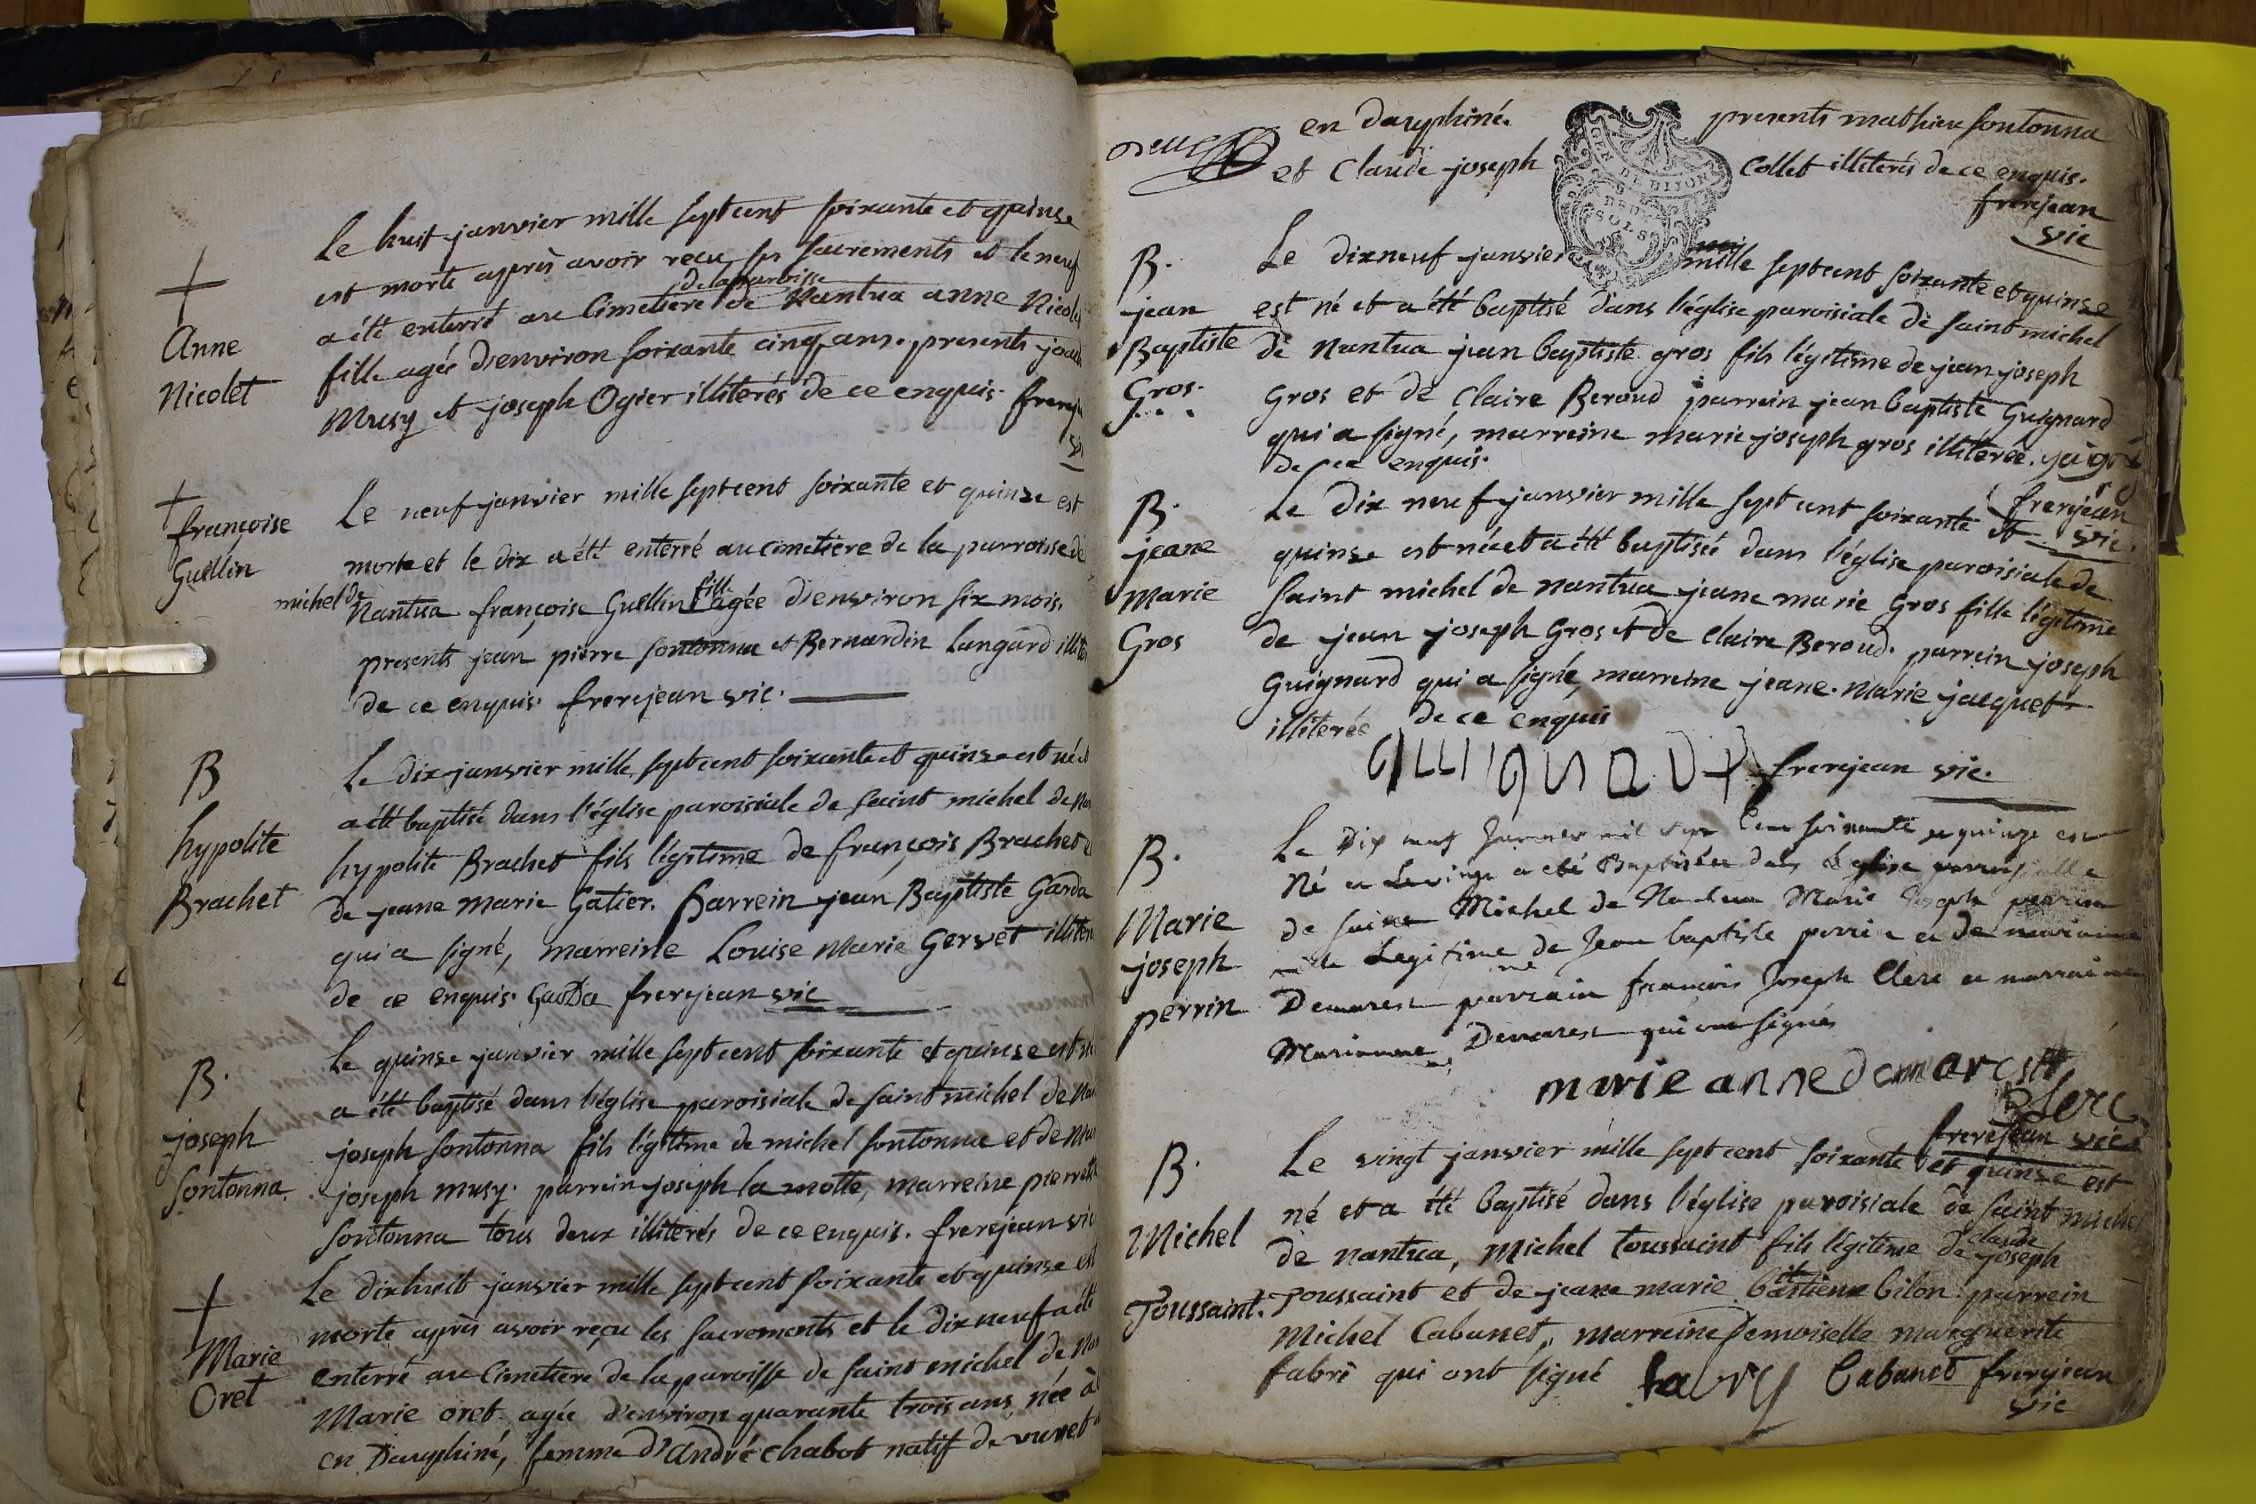 Le huit janvier mille sept cent soixante et quinze
est morte après avoir reçu ses sacrements et le neuf
de la parroisse
a été enterré au Cimetiere de Nantua anne Nicolet
fille agée d'environ soixante cinq ans. presents
Musy et joseph Ogier illiterés de ce enquis. frerej
vi
+
Anne
Nicolet
Le neuf janvier mille sept cent soixante et quinze est
morte et le dix a été enterré au cimetiere de la parroisse de
michel de Nantua françoise Guellin fille agée d'environ six mois.
presents jean pierre sontonna et Bernardin Langard illite
de ce enquis. frerejean vic.
+
françoise
Guellin
Le dix janvier mille sept cent soixante et quinze est né et
a été baptisé dans l'église paroisiale de saint michel de Nan
hypolite Brachet fils légitime de françois Brachet et
de jeane marie Gatier. Parrein jean Baptiste Garda
qui a signé, marreine Louise Marie Gervet illiter
de ce enquis. Garda frerejean vic
B
hypolite
Brachet
Le quinze janvier mille sept cent soixante et quinze est né
a été baptisé dans l'église paroisiale de saint michel de Nan
joseph sontonna fils légitime de michel sontonna et de Mar
joseph musy. parrein joseph la motte, marreine pierrette
sontonna tous deux illiterés de ce enquis. frerejean vic
B.
joseph
sontonna.
Le dixhuit janvier mille sept cent soixante et quinze est
morte après avoir reçu les sacrements et le dix neuf a été
enterré au Cimetiere de la paroisse de saint michel de Nan
Marie oret agée d'environ quarante trois ans, née à
en Dauphiné, femme d'André chabot natif de
+
Marie
Oret
en dauphiné. presents mathieu sontonna
et Claude joseph Collet illiterés de ce enquis.
frerejean
vic
GEN DE DIJON
DEUX
SOLS
B.
jean
Baptiste
Gros.
Le dixneuf janvier mille sept cent soixante et quinze
est né et a été baptisé dans l'église paroisiale de saint michel
de Nantua jean baptiste gros fils légitime de jean joseph
Gros et de Claire Beroud parrein jean baptiste Guignard
qui a signé, marreine marie joseph gros illiterée.
de ce enquis.
frerejean
vic.
B.
jeane
Marie
Gros
Le dix neuf janvier mille sept cent soixante et
quinze est née et a été baptisée dans l'église paroisiale de
saint michel de nantua jeane marie Gros fille légitime
de jean joseph Gros et de Claire Beroud. parrein joseph
Guignard qui a signé, marreine jeane. Marie jacquet
illiterée de ce enquis
frerejean vic.
B.
Marie
joseph
perrin
Le Dix neuf Janvier mil sept Cent soixante et quinze est
Né et Le vingt a eté Baptisée dans L'eglise parroissialle
de saint Michel de Nantua Marie Joseph perrin
fille Legitime de Jean baptiste perrin et de marianne
Demarest parrain françois Joseph Clerc et marraine
Marianne Demarest qui ont signés
marie anne demarest
Clerc
frerejean vic.
B.
Michel
Toussaint.
Le vingt janvier mille sept cent soixante et quinze est
né et a été baptisé dans l'église paroisiale de saint michel
de nantua, Michel toussaint fils légitime de claude joseph
Toussaint et de jeane marie bilon. parrein
Michel Cabanet, marreine Demoiselle marguerite
fabri qui ont signé Cabanet frerejean
vic